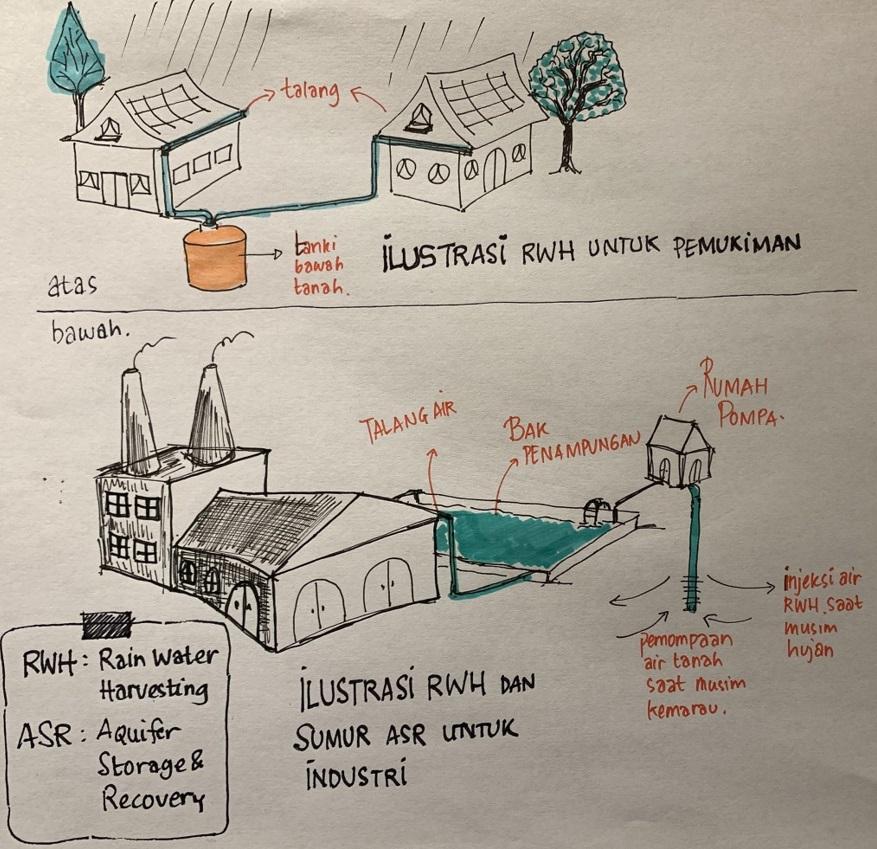 talang
tanki
bawah
tanah.
ILUSTRASI RWH UNTUK PEMUKIMAN
atas
bawah.
RUMAH
POMPA.
TALANG AIR
BAK
PENAMPUNGAN
injeksi air
RWH saat
musim
hujan
pemompaan
air tanah
saat musim
kemarau.
RWH: Rain Water
Harvesting
ASR: Aquifer
Storage &
Recovery
ILUSTRASI RWH DAN
SUMUR ASR UNTUK
INDUSTRI